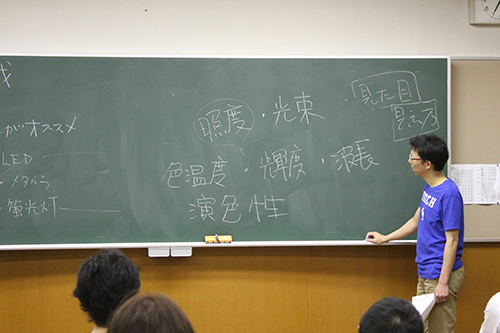 がオススメ
LED
・メタハラ
・蛍光灯
照度・光束
色温度・輝度・波長
演色性
・見た目
見え方